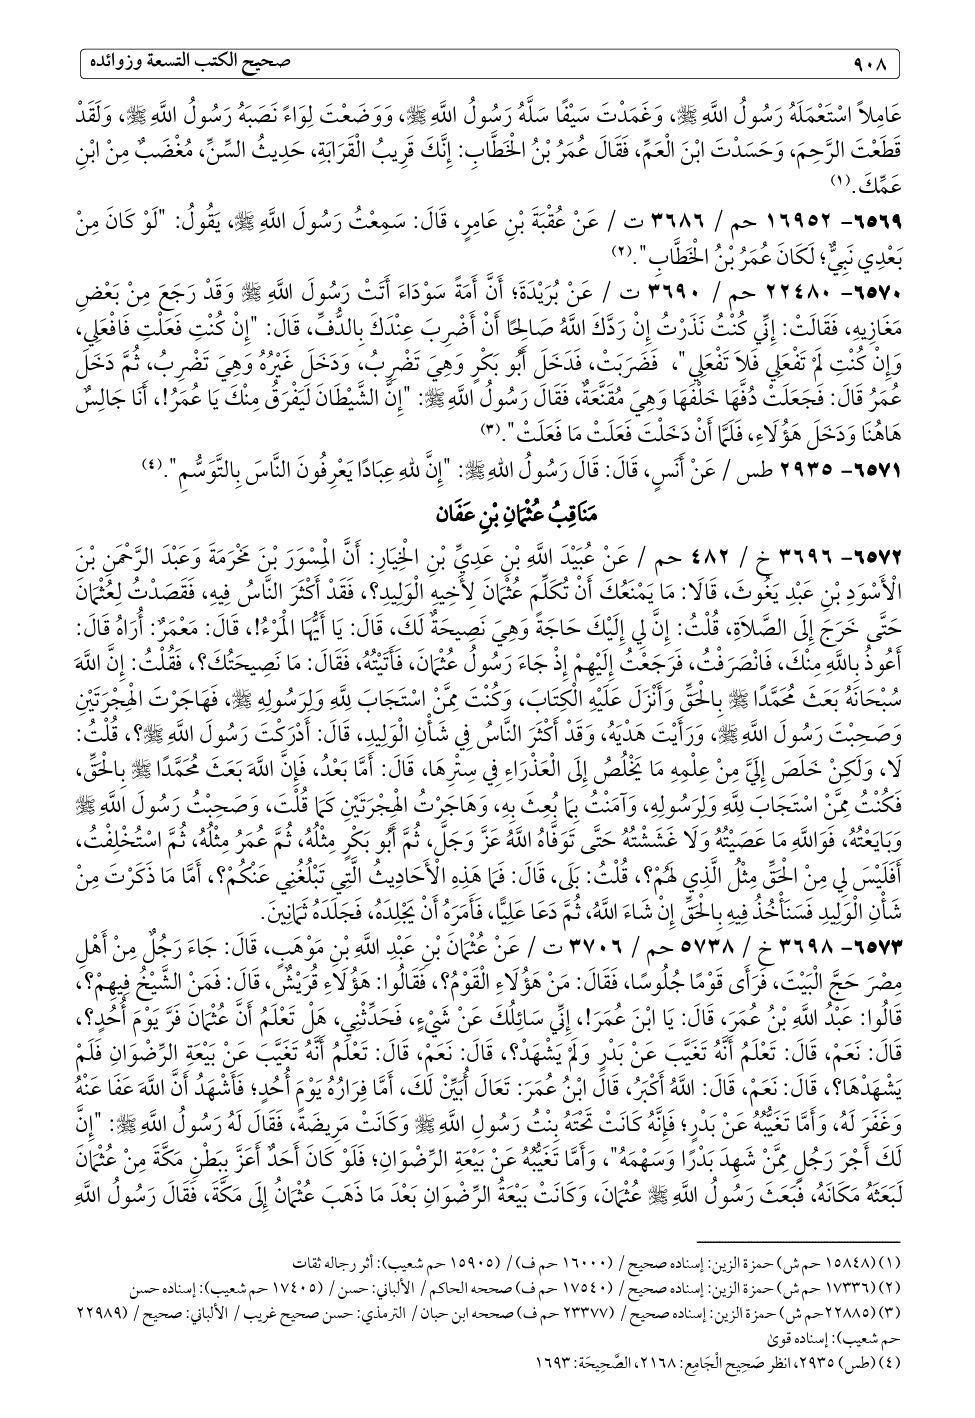 ٩٠٨ صحيح الكتب التسعة وزوائده
عَامِلاً اسْتَعْمَلَهُ رَسُولُ اللَّهِ ﷺ، وَغَمَدْتَ سَيْفًا سَلَّهُ رَسُولُ اللَّهِ ﷺ، وَوَضَعْتَ لِوَاءً نَصَبَهُ رَسُولُ اللَّهِ ﷺ، وَلَقَدْ
قَطَعْتَ الرَّحِمَ، وَحَسَدْتَ ابْنَ الْعَمِّ، فَقَالَ عُمَرُ بْنُ الْخَطَّابِ: إِنَّكَ قَرِيبُ الْقَرَابَةِ، حَدِيثُ السِّنِّ، مُغْضَبٌ مِنْ ابْنِ
عَمِّكَ.(١)
٦٥٦٩- ١٦٩٥٢ حم / ٣٦٨٦ ت / عَنْ عُقْبَةَ بْنِ عَامِرٍ، قَالَ: سَمِعْتُ رَسُولَ اللَّهِ ﷺ، يَقُولُ: "لَوْ كَانَ مِنْ
بَعْدِي نَبِيٌّ؛ لَكَانَ عُمَرُ بْنُ الْخَطَّابِ".(٢)
٦٥٧٠- ٢٢٤٨٠ حم / ٣٦٩٠ ت / عَنْ بُرَيْدَةَ؛ أَنَّ أَمَةً سَوْدَاءَ أَتَتْ رَسُولَ اللَّهِ ﷺ وَقَدْ رَجَعَ مِنْ بَعْضِ
مَغَازِيهِ، فَقَالَتْ: إِنِّي كُنْتُ نَذَرْتُ إِنْ رَدَّكَ اللَّهُ صَالِحًا أَنْ أَضْرِبَ عِنْدَكَ بِالدُّفِّ، قَالَ: "إِنْ كُنْتِ فَعَلْتِ فَافْعَلِي،
وَإِنْ كُنْتِ لَمْ تَفْعَلِي فَلاَ تَفْعَلِي"، فَضَرَبَتْ، فَدَخَلَ أَبُو بَكْرٍ وَهِيَ تَضْرِبُ، وَدَخَلَ غَيْرُهُ وَهِيَ تَضْرِبُ، ثُمَّ دَخَلَ
عُمَرُ قَالَ: فَجَعَلَتْ دُفَّهَا خَلْفَهَا وَهِيَ مُقَنَّعَةٌ، فَقَالَ رَسُولُ اللَّهِ ﷺ: "إِنَّ الشَّيْطَانَ لَيَفْرَقُ مِنْكَ يَا عُمَرُ!، أَنَا جَالِسٌ
هَاهُنَا وَدَخَلَ هَؤُلَاءِ، فَلَمَّا أَنْ دَخَلْتَ فَعَلَتْ مَا فَعَلَتْ".(٣)
٦٥٧١- ٢٩٣٥ طس / عَنْ أَنَسٍ، قَالَ: قَالَ رَسُولُ اللهِ ﷺ: "إِنَّ لِلهِ عِبَادًا يَعْرِفُونَ النَّاسَ بِالتَّوَسُّمِ".(٤)
مَنَاقِبُ عُثْمَانَ بْنِ عَفَان
٦٥٧٢- ٣٦٩٦ خ / ٤٨٢ حم / عَنْ عُبَيْدَ اللَّهِ بْنِ عَدِيِّ بْنِ الْخِيَارِ: أَنَّ الْمِسْوَرَ بْنَ مَخْرَمَةَ وَعَبْدَ الرَّحْمَنِ بْنَ
الْأَسْوَدِ بْنِ عَبْدِ يَغُوثَ، قَالَا: مَا يَمْنَعُكَ أَنْ تُكَلِّمَ عُثْمَانَ لِأَخِيهِ الْوَلِيدِ؟، فَقَدْ أَكْثَرَ النَّاسُ فِيهِ، فَقَصَدْتُ لِعُثْمَانَ
حَتَّى خَرَجَ إِلَى الصَّلاَةِ، قُلْتُ: إِنَّ لِي إِلَيْكَ حَاجَةً وَهِيَ نَصِيحَةٌ لَكَ، قَالَ: يَا أَيُّهَا الْمَرْءُ!، قَالَ: مَعْمَرٌ: أُرَاهُ قَالَ:
أَعُوذُ بِاللَّهِ مِنْكَ، فَانْصَرَفْتُ، فَرَجَعْتُ إِلَيْهِمْ إِذْ جَاءَ رَسُولُ عُثْمَانَ، فَأَتَيْتُهُ، فَقَالَ: مَا نَصِيحَتُكَ؟، فَقُلْتُ: إِنَّ اللَّهَ
سُبْحَانَهُ بَعَثَ مُحَمَّدًا ﷺ بِالْحَقِّ وَأَنْزَلَ عَلَيْهِ الْكِتَابَ، وَكُنْتَ مِمَّنْ اسْتَجَابَ لِلَّهِ وَلِرَسُولِهِ ﷺ، فَهَاجَرْتَ الْهِجْرَتَيْنِ
وَصَحِبْتَ رَسُولَ اللَّهِ ﷺ، وَرَأَيْتَ هَدْيَهُ، وَقَدْ أَكْثَرَ النَّاسُ فِي شَأْنِ الْوَلِيدِ، قَالَ: أَدْرَكْتَ رَسُولَ اللَّهِ ﷺ؟، قُلْتُ:
لَا، وَلَكِنْ خَلَصَ إِلَيَّ مِنْ عِلْمِهِ مَا يَخْلُصُ إِلَى الْعَذْرَاءِ فِي سِتْرِهَا، قَالَ: أَمَّا بَعْدُ، فَإِنَّ اللَّهَ بَعَثَ مُحَمَّدًا ﷺ بِالْحَقِّ،
فَكُنْتُ مِمَّنْ اسْتَجَابَ لِلَّهِ وَلِرَسُولِهِ، وَآمَنْتُ بِمَا بُعِثَ بِهِ، وَهَاجَرْتُ الْهِجْرَتَيْنِ كَمَا قُلْتَ، وَصَحِبْتُ رَسُولَ اللَّهِ ﷺ
وَبَايَعْتُهُ، فَوَاللَّهِ مَا عَصَيْتُهُ وَلَا غَشَشْتُهُ حَتَّى تَوَفَّاهُ اللَّهُ عَزَّ وَجَلَّ، ثُمَّ أَبُو بَكْرٍ مِثْلُهُ، ثُمَّ عُمَرُ مِثْلُهُ، ثُمَّ اسْتُخْلِفْتُ،
أَفَلَيْسَ لِي مِنْ الْحَقِّ مِثْلُ الَّذِي لَهُمْ؟، قُلْتُ: بَلَى، قَالَ: فَمَا هَذِهِ الْأَحَادِيثُ الَّتِي تَبْلُغُنِي عَنْكُمْ؟، أَمَّا مَا ذَكَرْتَ مِنْ
شَأْنِ الْوَلِيدِ فَسَنَأْخُذُ فِيهِ بِالْحَقِّ إِنْ شَاءَ اللَّهُ، ثُمَّ دَعَا عَلِيًّا، فَأَمَرَهُ أَنْ يَجْلِدَهُ، فَجَلَدَهُ ثَمَانِينَ.
٦٥٧٣- ٣٦٩٨ خ / ٥٧٣٨ حم / ٣٧٠٦ ت / عَنْ عُثْمَانَ بْنِ عَبْدِ اللَّهِ بْنِ مَوْهَبٍ، قَالَ: جَاءَ رَجُلٌ مِنْ أَهْلِ
مِصْرَ حَجَّ الْبَيْتَ، فَرَأَى قَوْمًا جُلُوسًا، فَقَالَ: مَنْ هَؤُلَاءِ الْقَوْمُ؟، فَقَالُوا: هَؤُلَاءِ قُرَيْشٌ، قَالَ: فَمَنْ الشَّيْخُ فِيهِمْ؟،
قَالُوا: عَبْدُ اللَّهِ بْنُ عُمَرَ، قَالَ: يَا ابْنَ عُمَرَ!، إِنِّي سَائِلُكَ عَنْ شَيْءٍ، فَحَدِّثْنِي، هَلْ تَعْلَمُ أَنَّ عُثْمَانَ فَرَّ يَوْمَ أُحُدٍ؟،
قَالَ: نَعَمْ، قَالَ: تَعْلَمُ أَنَّهُ تَغَيَّبَ عَنْ بَدْرٍ وَلَمْ يَشْهَدْ؟، قَالَ: نَعَمْ، قَالَ: تَعْلَمُ أَنَّهُ تَغَيَّبَ عَنْ بَيْعَةِ الرِّضْوَانِ فَلَمْ
يَشْهَدْهَا؟، قَالَ: نَعَمْ، قَالَ: اللَّهُ أَكْبَرُ، قَالَ ابْنُ عُمَرَ: تَعَالَ أُبَيِّنْ لَكَ، أَمَّا فِرَارُهُ يَوْمَ أُحُدٍ؛ فَأَشْهَدُ أَنَّ اللَّهَ عَفَا عَنْهُ
وَغَفَرَ لَهُ، وَأَمَّا تَغَيُّبُهُ عَنْ بَدْرٍ؛ فَإِنَّهُ كَانَتْ تَحْتَهُ بِنْتُ رَسُولِ اللَّهِ ﷺ وَكَانَتْ مَرِيضَةً، فَقَالَ لَهُ رَسُولُ اللَّهِ ﷺ: "إِنَّ
لَكَ أَجْرَ رَجُلٍ مِمَّنْ شَهِدَ بَدْرًا وَسَهْمَهُ"، وَأَمَّا تَغَيُّبُهُ عَنْ بَيْعَةِ الرِّضْوَانِ؛ فَلَوْ كَانَ أَحَدٌ أَعَزَّ بِبَطْنِ مَكَّةَ مِنْ عُثْمَانَ
لَبَعَثَهُ مَكَانَهُ، فَبَعَثَ رَسُولُ اللَّهِ ﷺ عُثْمَانَ، وَكَانَتْ بَيْعَةُ الرِّضْوَانِ بَعْدَ مَا ذَهَبَ عُثْمَانُ إِلَى مَكَّةَ، فَقَالَ رَسُولُ اللَّهِ
(١) (١٥٨٤٨ حم ش) حمزة الزين: إسناده صحيح / (١٦٠٠٠ حم ف) / (١٥٩٠٥ حم شعيب): أثر رجاله ثقات
(٢) (١٧٣٣٦ حم ش) حمزة الزين: إسناده صحيح / (١٧٥٤٠ حم ف) صححه الحاكم / الألباني: حسن / (١٧٤٠٥ حم شعيب): إسناده حسن
(٣) (٢٢٨٨٥حم ش) حمزة الزين: إسناده صحيح / (٢٣٣٧٧ حم ف) صححه ابن حبان / الترمذي: حسن صحيح غريب / الألباني: صحيح / (٢٢٩٨٩
حم شعيب): إسناده قوى
(٤) (طس) ٢٩٣٥، انظر صَحِيح الْجَامِع: ٢١٦٨، الصَّحِيحَة: ١٦٩٣